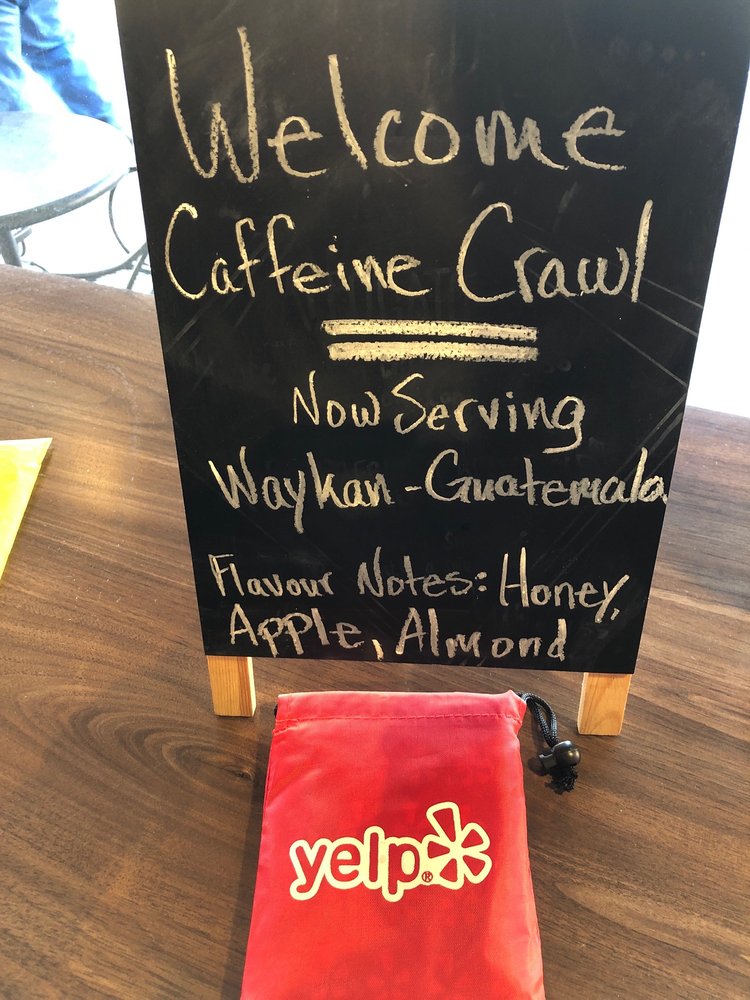 Welcome
Caffeine Crawl
Now Serving
Waykan - Guatemala
Flavour Notes: Honey,
Apple, Almond
yelp®